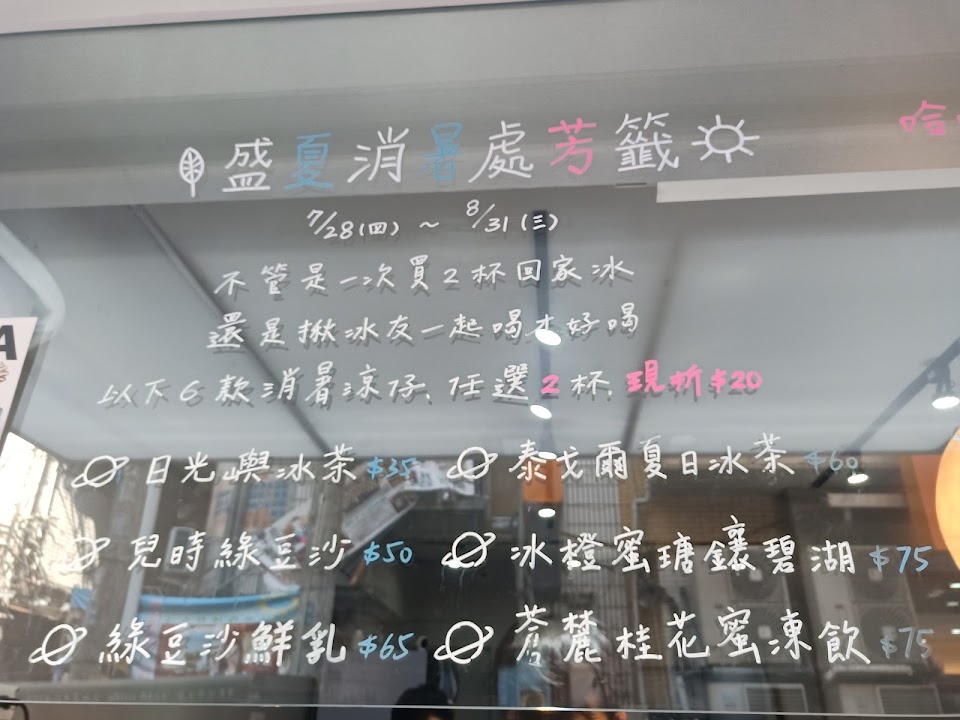 盛夏消暑處芳籤
哈
7/28(四) ~ 8/31(三)
不管是一次買2杯回家冰
還是揪冰友一起喝才好喝
A
以下6款消暑涼仔、任選2杯、現折$20
日光嶼冰茶$35 泰戈爾夏日冰茶$60
兒時綠豆沙$50 冰橙蜜瑭鑲碧湖$75
綠豆沙鮮乳$65 蒼麓桂花蜜凍飲$75